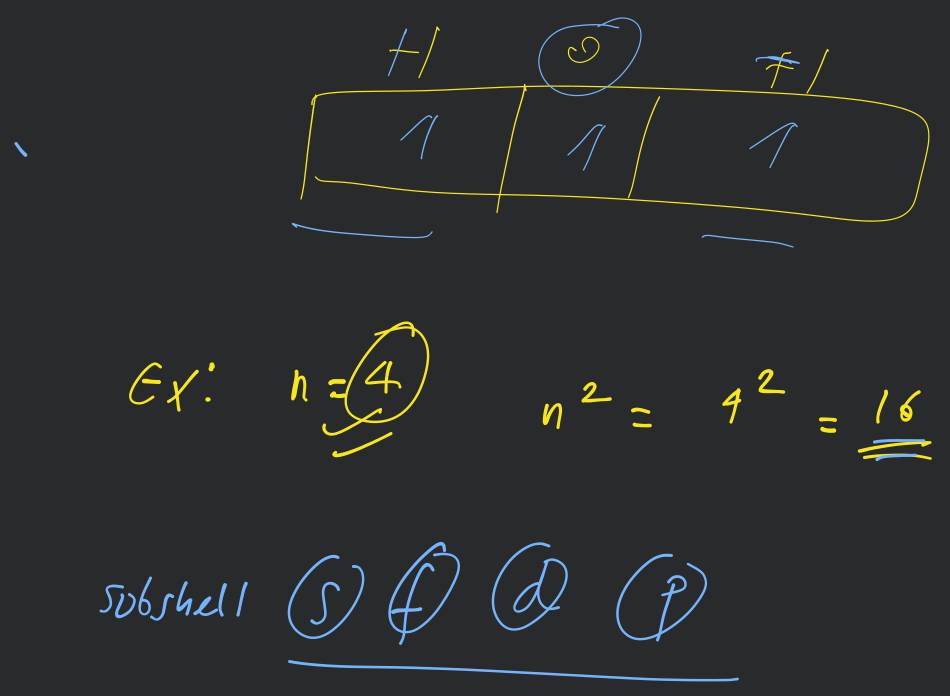 +1 0 ≠1
1 1 1
Ex: n = 4 n² = 4² = 16
subshell s f d p